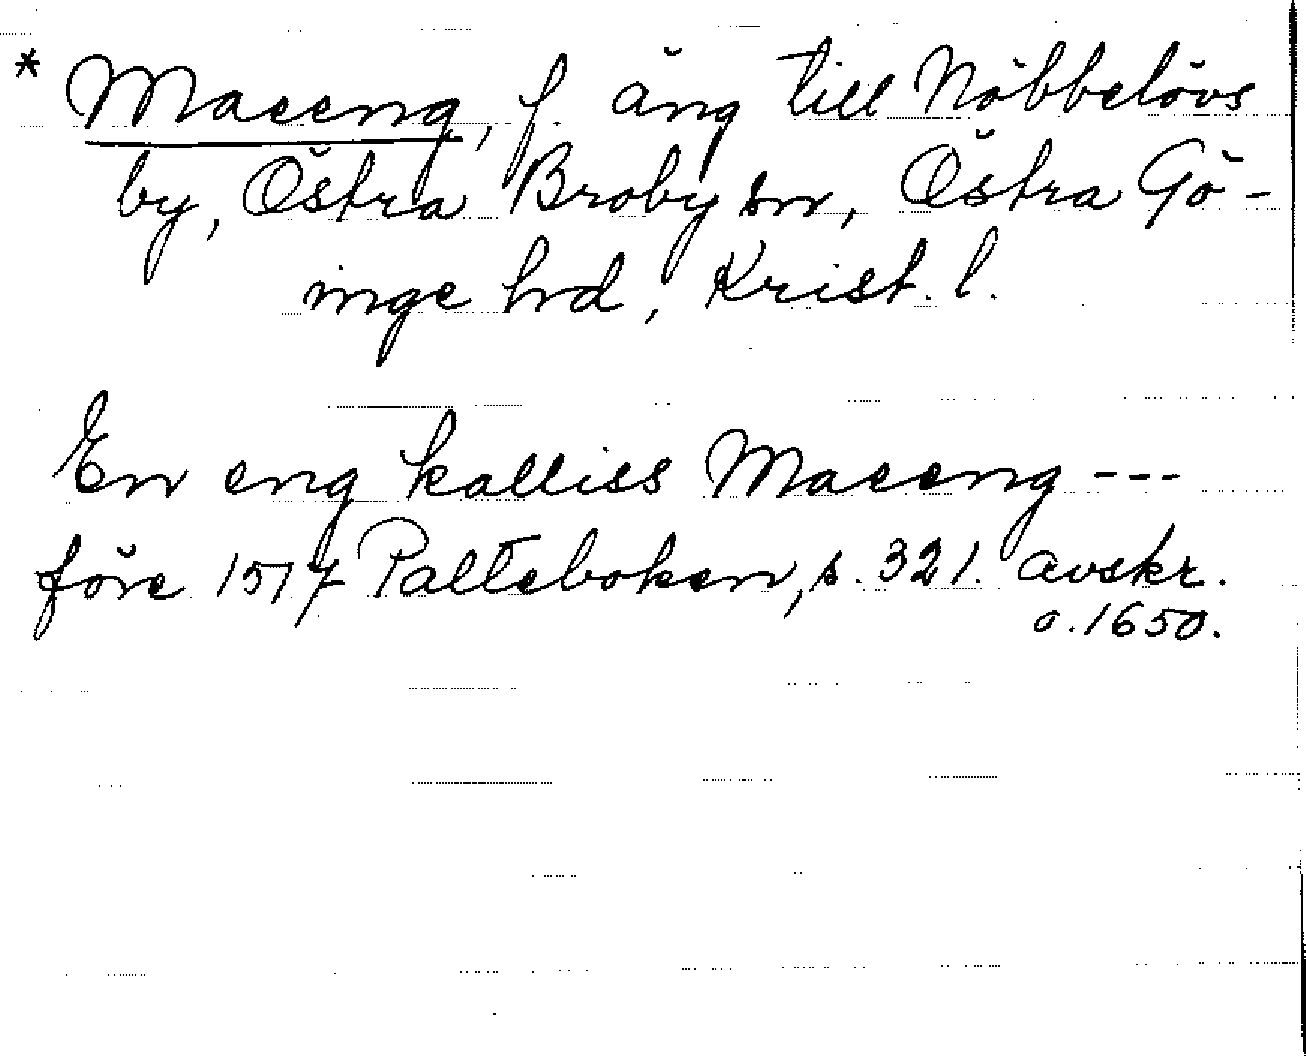 * Maeeng, f. äng till Nöbbelövs
by, Östra Broby sn, Östra Gö-
inge hd, Krist. l.
En eng kalliss Maeeng ---
före 1517 Palteboken, s. 321. avskr.
o. 1650.